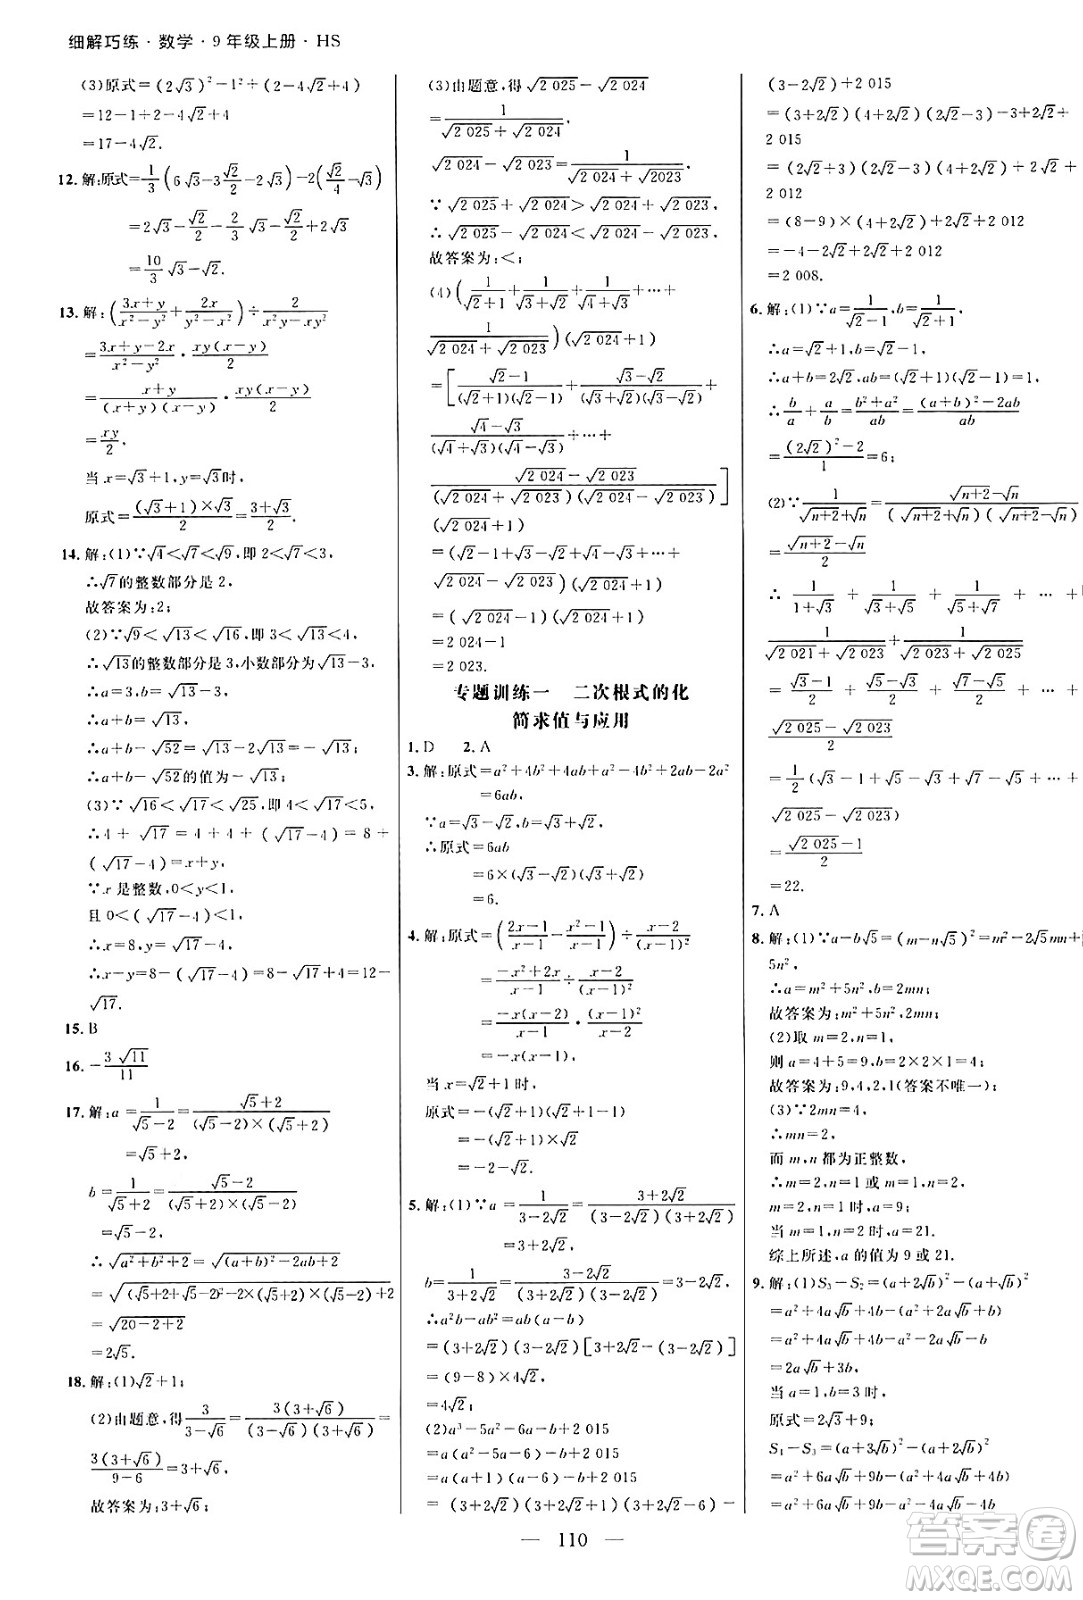 细解巧练·数学·9年级上册·HS
(3)原式=(2√3)²-1²+(2-4√2+4)
=12-1+2-4√2+4
=17-4√2.
12.解:原式=1/3(6√3-3√2/2-2√3)-(√2/2-√3)
=2√3-√2/2-2/3√3-√2/2+√3
=10/3√3-√2.
13.解:((3x+y)/(x²-y²)+2x/(y²-x²))÷2/(x²y-xy²)
=(3x+y-2x)/(x²-y²)·xy(x-y)/2
=(x+y)/((x+y)(x-y))·xy(x-y)/2
=xy/2.
当x=√3+1,y=√3时,
原式=(√3+1)×√3/2=(3+√3)/2.
14.解:(1)∵√4<√7<√9,即2<√7<3,
∴√7的整数部分是2,
故答案为:2;
(2)∵√9<√13<√16,即3<√13<4,
∴√13的整数部分是3,小数部分是√13-3,
∴a=3,b=√13-3,
∴a+b=√13,
∴a+b-√52=√13-2√13=-√13,
∴a+b-√52的值为-√13;
(3)∵√16<√17<√25,即4<√17<5,
∴4+√17=4+4+(√17-4)=8+
(√17-4)=x+y,
∵x是整数,0<y<1,
且0<(√17-4)<1,
∴x=8,y=√17-4,
∴x-y=8-(√17-4)=8-√17+4=12-
√17.
15.B
16.-3√11/11
17.解:a=1/(√5-2)=(√5+2)/((√5-2)×(√5+2))
=√5+2,
b=1/(√5+2)=(√5-2)/((√5+2)×(√5-2))
=√5-2,
∴√(a²+b²+2)=√((a+b)²-2ab+2)
=√((√5+2+√5-2)²-2×(√5+2)×(√5-2)+2)
=√(20-2+2)
=2√5.
18.解:(1)√2+1;
(2)由题意,得3/(3-√6)=3(3+√6)/((3-√6)(3+√6))=
3(3+√6)/(9-6)=3+√6,
故答案为:3+√6;
(3)由题意,得√2 025-√2 024
=1/(√2 025+√2 024),
√2 024-√2 023=1/(√2 024+√2023)
∵√2 025+√2 024>√2 024+√2 023,
∴√2 025-√2 024<√2 024-√2 023,
故答案为:<;
(4)(1/(√2+1)+1/(√3+√2)+1/(√4+√3)+…+
1/(√2 024+√2 023))(√2 024+1)
=[(√2-1)/((√2+1)(√2-1))+(√3-√2)/((√3+√2)(√3-√2))+
(√4-√3)/((√4+√3)(√4-√3))+…+
(√2 024-√2 023)/((√2 024+√2 023)(√2 024-√2 023))]
(√2 024+1)
=(√2-1+√3-√2+√4-√3+…+
√2 024-√2 023)(√2 024+1)
=(√2 024-1)(√2 024+1)
=2 024-1
=2 023.
专题训练一 二次根式的化
简求值与应用
1.D 2.A
3.解:原式=a²+4b²+4ab+a²-4b²+2ab-2a²
=6ab,
∵a=√3-√2,b=√3+√2,
∴原式=6ab
=6×(√3-√2)(√3+√2)
=6.
4.解:原式=((2x-1)/(x-1)-(x²-1)/(x-1))÷(x-2)/(x-1)²
=(-x²+2x)/(x-1)÷(x-2)/(x-1)²
=-x(x-2)/(x-1)·(x-1)²/(x-2)
=-x(x-1)
当x=√2+1时,
原式=-(√2+1)(√2+1-1)
=-(√2+1)×√2
=-2-√2.
5.解:(1)∵a=1/(3-2√2)=(3+2√2)/((3-2√2)(3+2√2))
=3+2√2,
b=1/(3+2√2)=(3-2√2)/((3+2√2)(3-2√2))=3-2√2,
∴a²b-ab²=ab(a-b)
=(3+2√2)(3-2√2)[3+2√2-(3-2√2)]
=(9-8)×4√2
=4√2;
(2)a³-5a²-6a-b+2 015
=a(a²-5a-6)-b+2 015
=a(a+1)(a-6)-b+2 015
=(3+2√2)(3+2√2+1)(3+2√2-6)-
(3-2√2)+2 015
=(3+2√2)(4+2√2)(2√2-3)-3+2√2+
2 015
=(2√2+3)(2√2-3)(4+2√2)+2√2+
2 012
=(8-9)×(4+2√2)+2√2+2 012
=-4-2√2+2√2+2 012
=2 008.
6.解:(1)∵a=1/(√2-1),b=1/(√2+1),
∴a=√2+1,b=√2-1,
∴a+b=2√2,ab=(√2+1)(√2-1)=1,
∴b/a+a/b=(b²+a²)/ab=((a+b)²-2ab)/ab
=((2√2)²-2)/1=6;
(2)∵1/(√(n+2)+√n)=(√(n+2)-√n)/((√(n+2)+√n)(√(n+2)-√n))
=(√(n+2)-√n)/2,
∴1/(1+√3)+1/(√3+√5)+1/(√5+√7)+…+
1/(√2 021+√2 023)+1/(√2 023+√2 025)
=(√3-1)/2+(√5-√3)/2+(√7-√5)/2+…+
(√2 025-√2 023)/2
=1/2(√3-1+√5-√3+√7-√5+…+
√2 025-√2 023)
=(√2 025-1)/2
=22.
7.A
8.解:(1)∵a-b√5=(m-n√5)²=m²-2√5mn+
5n²,
∴a=m²+5n²,b=2mn;
故答案为:m²+5n²,2mn;
(2)取m=2,n=1,
则a=4+5=9,b=2×2×1=4;
故答案为:9,4,2,1(答案不唯一);
(3)∵2mn=4,
∴mn=2,
而m,n都为正整数,
∴m=1,n=2或m=2,n=1,
当m=2,n=1时,a=9;
当m=1,n=2时,a=21.
综上所述,a的值为9或21.
9.解:(1)S₃-S₂=(a+2√b)²-(a+√b)²
=a²+4a√b+4b-a²-2a√b-b
=2a√b+3b,
当a=1,b=3时,
原式=2√3+9;
S₄-S₃=(a+3√b)²-(a+2√b)²
=a²+6a√b+9b-a²-4a√b-4b
— 110 —
答案圈
MXQE.COM